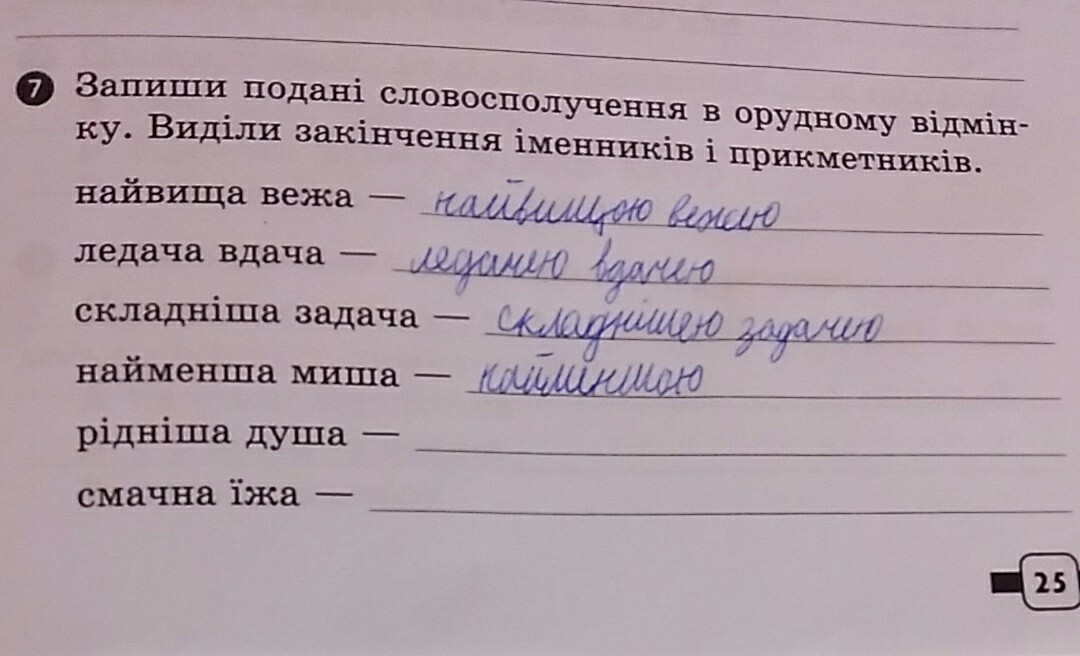 7 Запиши подані словосполучення в орудному відмін-
ку. Виділи закінчення іменників і прикметників.
найвища вежа — найвищою вежею
ледача вдача — ледачею вдачею
складніша задача — складнішею задачею
найменша миша — найміншою
рідніша душа —
смачна їжа —
25